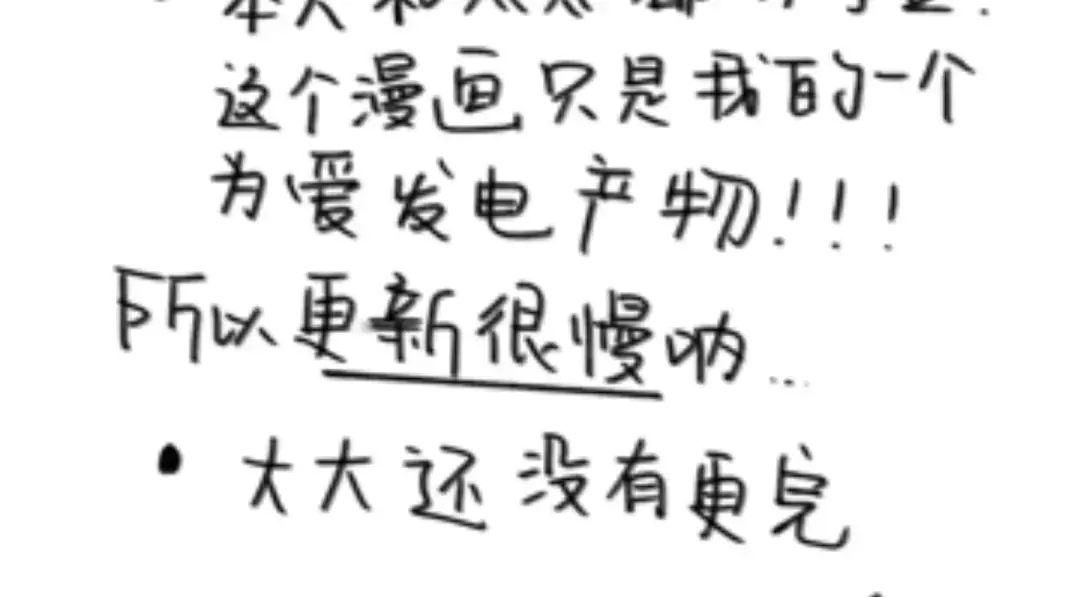 这个漫画只是我的一个
为爱发电产物!!!
所以更新很慢呐...
• 大大还没有更完